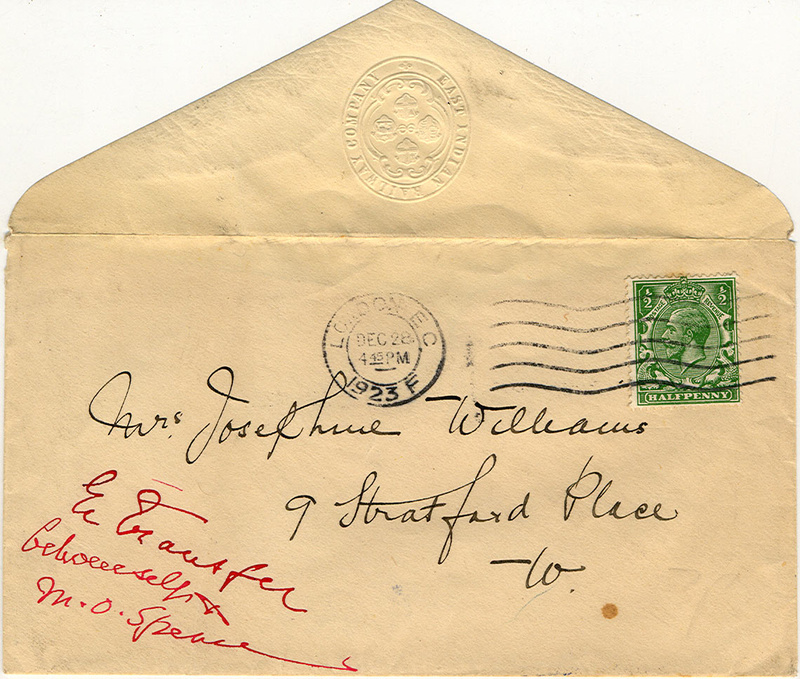 EAST INDIAN RAILWAY COMPANY
LONDON. E.C
DEC 28
4.15 PM
1923 F
½ ½
POSTAGE REVENUE
HALFPENNY
Mrs Josephine Williams
9 Stratford Place
W.
Transfer
M. O. Spence